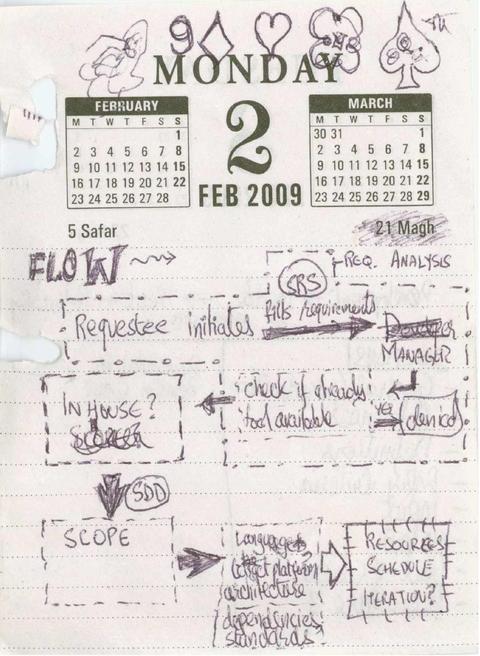 9
MONDAY
2
FEB 2009
FEBRUARY
M T W T F S S
1
2 3 4 5 6 7 8
9 10 11 12 13 14 15
16 17 18 19 20 21 22
23 24 25 26 27 28
MARCH
M T W T F S S
30 31 1
2 3 4 5 6 7 8
9 10 11 12 13 14 15
16 17 18 19 20 21 22
23 24 25 26 27 28 29
5 Safar
21 Magh
FLOW
REQ. ANALYSIS
SRS
Requestee initiates
fills requirements
MANAGER
IN HOUSE?
check if already
tool available
YES
denied
SDD
SCOPE
Language
target platform
architecture
dependencies
standards
RESOURCES
SCHEDULE
ITERATION?